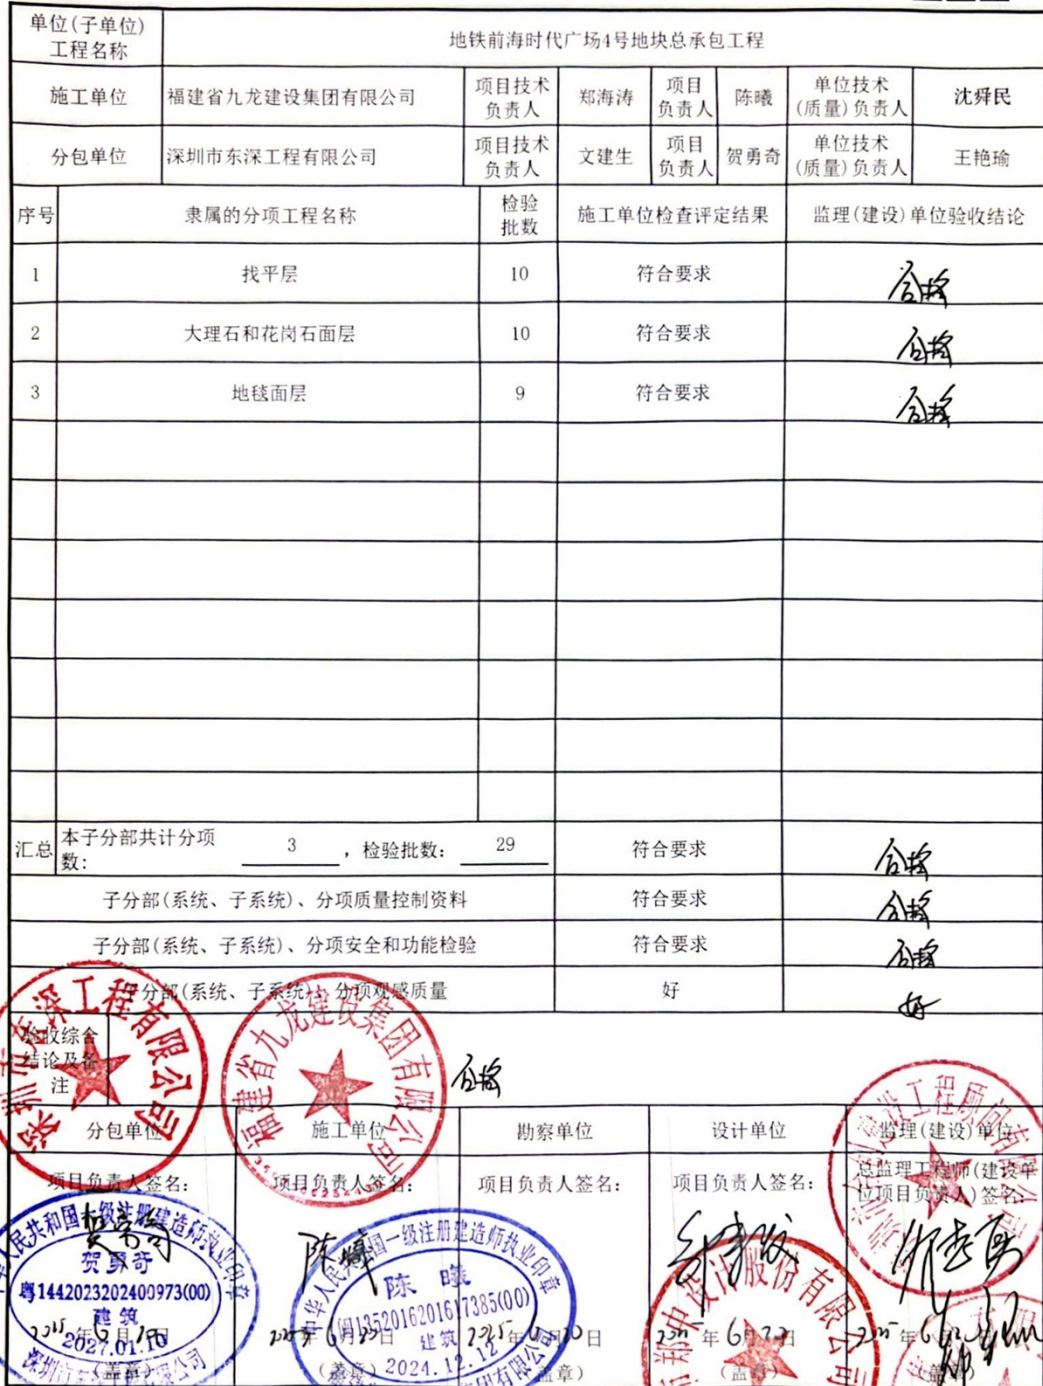 单位(子单位)
工程名称
地铁前海时代广场4号地块总承包工程
施工单位
福建省九龙建设集团有限公司
项目技术
负责人
郑海涛
项目
负责人
陈曦
单位技术
(质量)负责人
沈舜民
分包单位
深圳市东深工程有限公司
项目技术
负责人
文建生
项目
负责人
贺勇奇
单位技术
(质量)负责人
王艳瑜
序号
隶属的分项工程名称
检验
批数
施工单位检查评定结果
监理(建设)单位验收结论
1 找平层 10 符合要求 合格
2 大理石和花岗石面层 10 符合要求 合格
3 地毯面层 9 符合要求 合格
汇总
本子分部共计分项
数: 3 ，检验批数: 29
符合要求 合格
子分部(系统、子系统)、分项质量控制资料 符合要求 合格
子分部(系统、子系统)、分项安全和功能检验 符合要求 合格
子分部(系统、子系统)、分项观感质量 好 好
验收综合
结论及备
注
合格
深圳市东深工程有限公司
福建省九龙建设集团有限公司
分包单位 施工单位 勘察单位 设计单位 监理(建设)单位
项目负责人签名: 项目负责人签名: 项目负责人签名: 项目负责人签名:
总监理工程师(建设单
位项目负责人)签名:
中华人民共和国一级注册建造师执业印章
贺勇奇
粤1442023202400973(00)
建筑
2027.01.16
中华人民共和国一级注册建造师执业印章
陈曦
闽1352016201617385(00)
建筑
2024.12.12
年 月 日
(盖章)